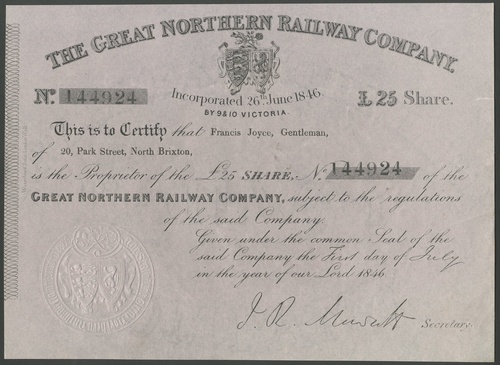 THE GREAT NORTHERN RAILWAY COMPANY,
No. 144924
Incorporated 26th June 1846.
BY 9 & 10 VICTORIA.
£25 Share.
This is to Certify that Francis Joyce, Gentleman,
of 20, Park Street, North Brixton,
is the Proprietor of the £25 SHARE, No. 144924 of the
GREAT NORTHERN RAILWAY COMPANY, subject to the regulations
of the said Company.
Given under the common Seal of the
said Company the First day of July
in the year of our Lord 1846
J. R. Mowatt Secretary.